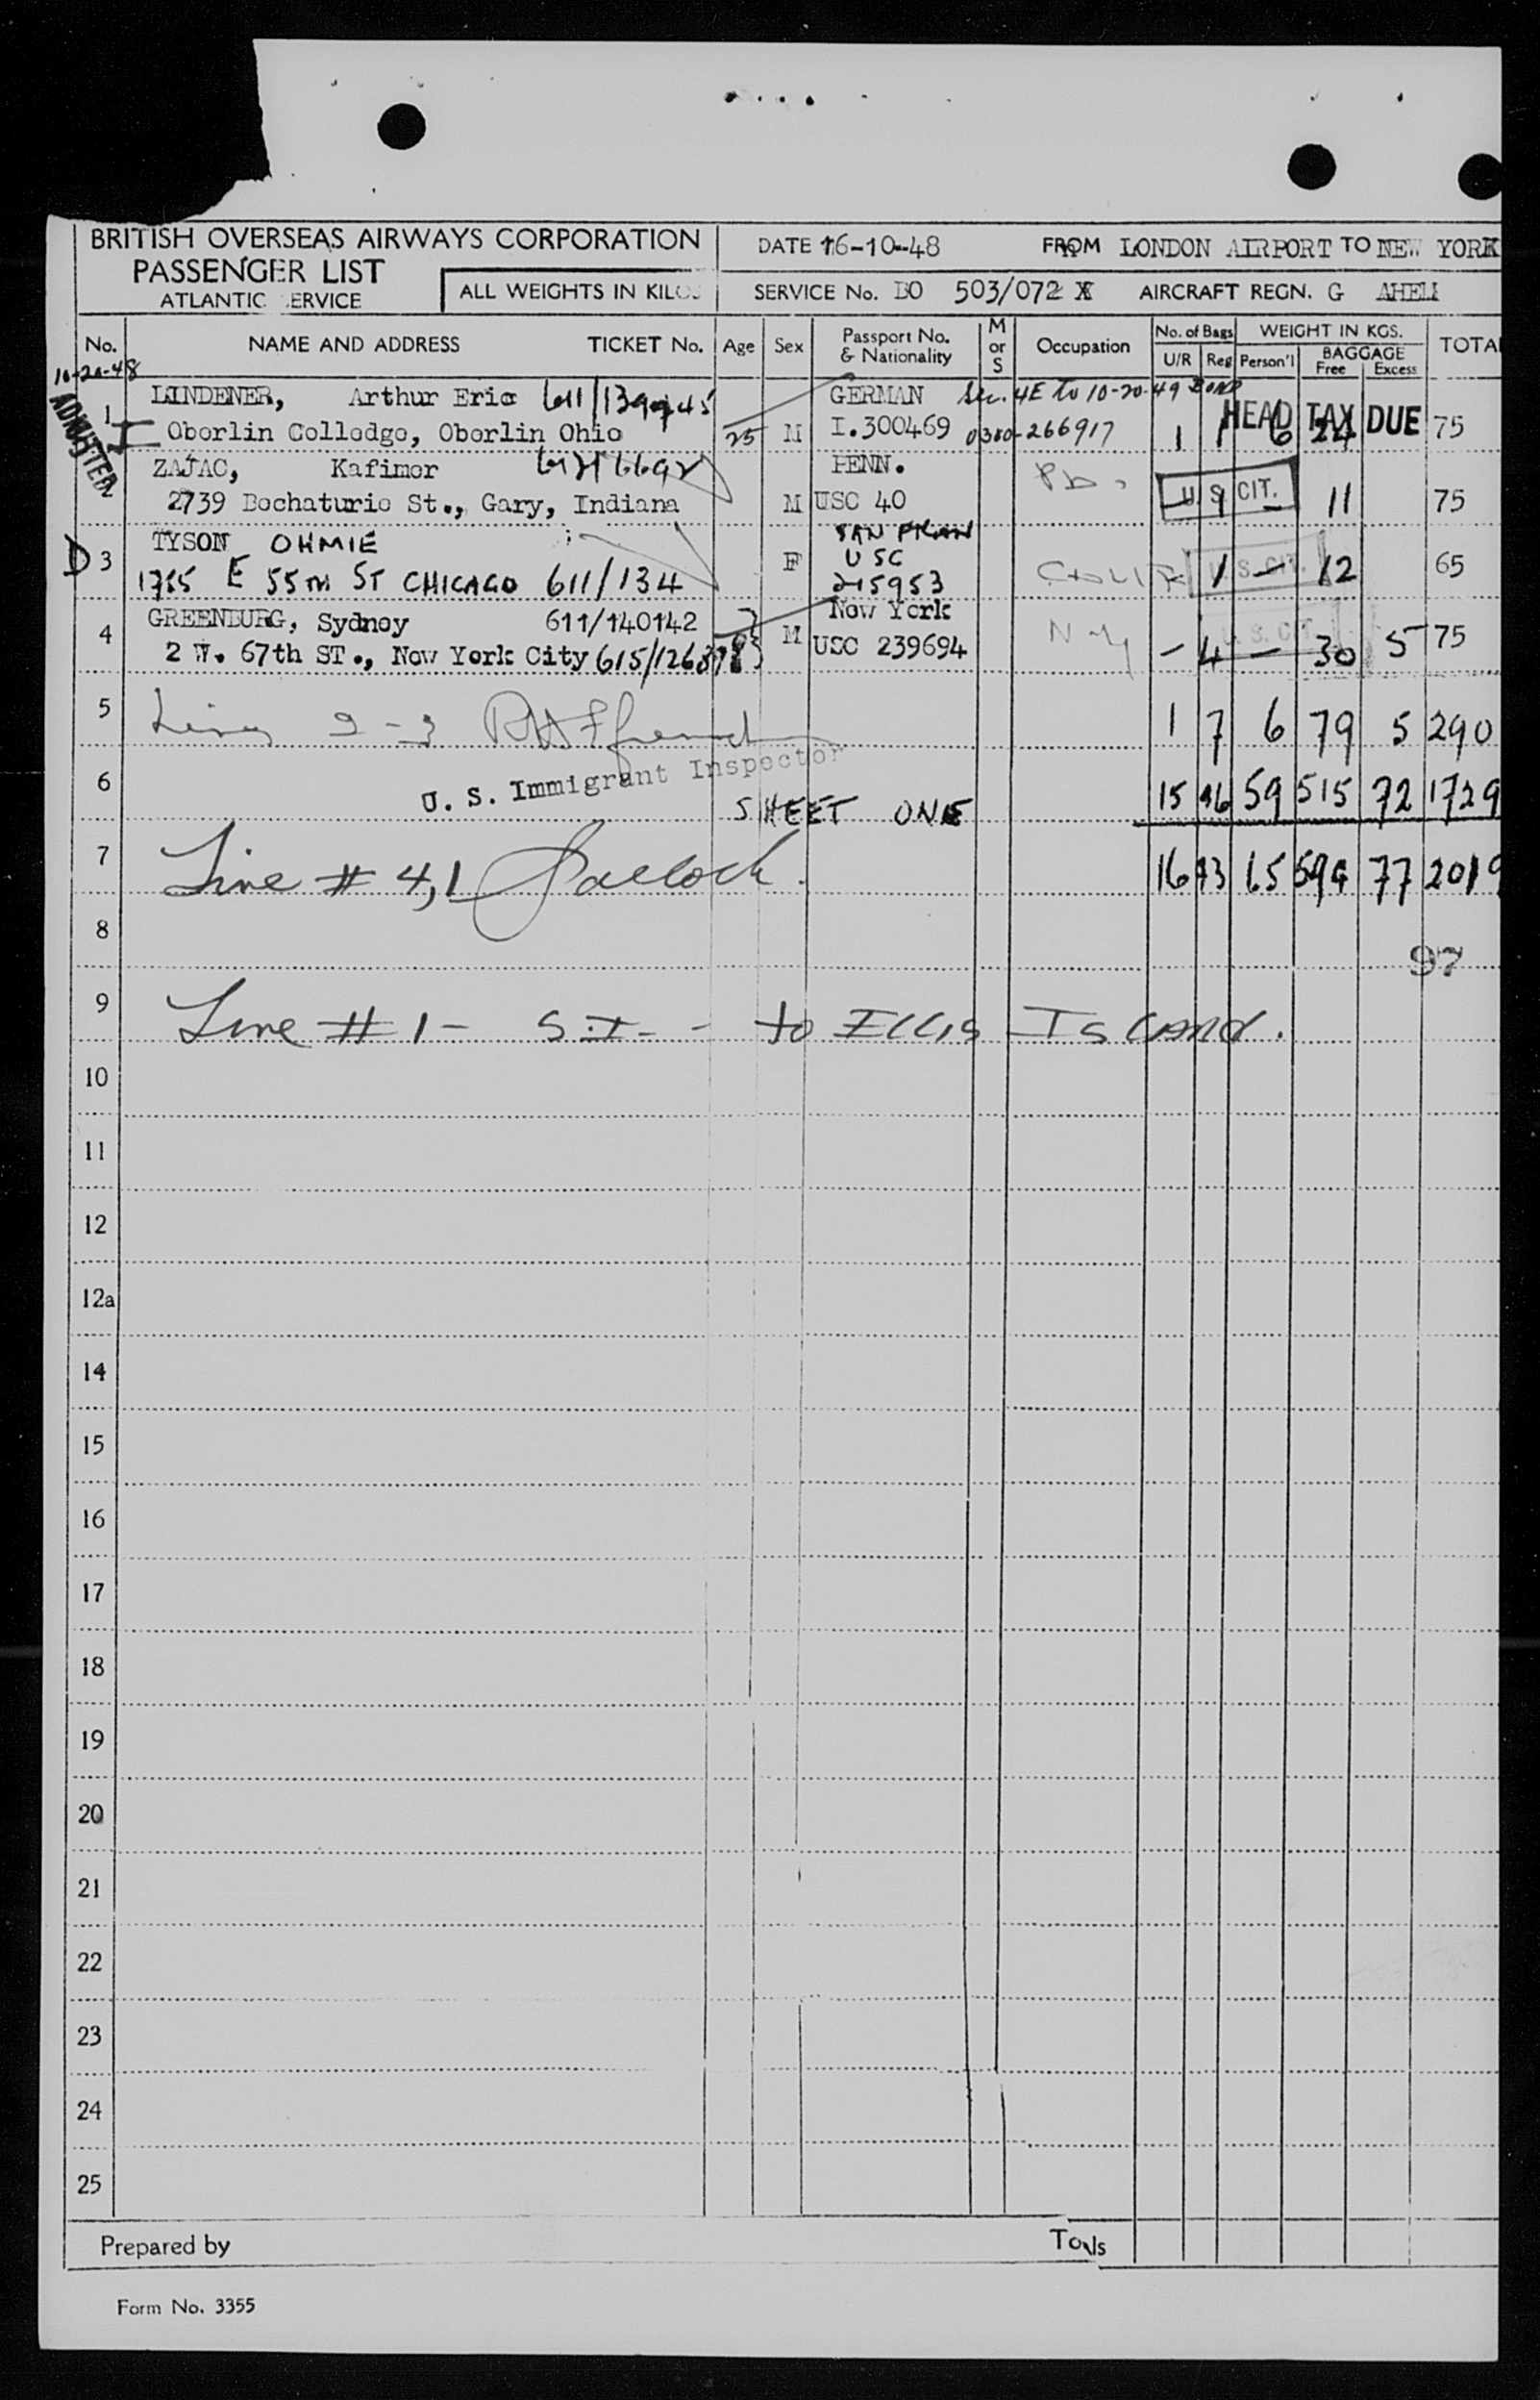 BRITISH OVERSEAS AIRWAYS CORPORATION
PASSENGER LIST
ATLANTIC SERVICE
ALL WEIGHTS IN KILOS
DATE 16-10-48 FROM LONDON AIRPORT TO NEW YORK
SERVICE No. BO 503/072 X AIRCRAFT REGN. G AHEM
No. NAME AND ADDRESS TICKET No. Age Sex Passport No. & Nationality M or S Occupation No. of Bags U/R Reg WEIGHT IN KGS. Person'l BAGGAGE Free Excess TOTAL
10-20-48
ADMITTED
1 LINDENER, Arthur Eric 611/139945 GERMAN Sec. 4E to 10-20-49 Bond
Oberlin Colledge, Oberlin Ohio 25 M I.300469 0300-266917 1 1 6 24 HEAD TAX DUE 75
ZAJAC, Kafimer PENN.
2739 Bochaturie St., Gary, Indiana M USC 40 U.S. CIT. 1 - 11 75
D 3 TYSON OHMIE F SAN FRAN
1755 E 55TH ST CHICAGO 611/134 USC 215953 1 - U.S. CIT. 12 65
4 GREENBURG, Sydney 611/140142 M New York
2 W. 67th ST., New York City 615/126878 USC 239694 NY - 4 - U.S. CIT. 30 5 75
5 Lines 2-3 1 7 6 79 5 290
6 U. S. Immigrant Inspector
SHEET ONE 15 36 59 515 72 1729
7 Line # 4,1 16 43 65 594 77 2019
8
97
9 Line # 1 - S.I. - to Ellis Island.
10
11
12
12a
14
15
16
17
18
19
20
21
22
23
24
25
Prepared by Totals
Form No. 3355